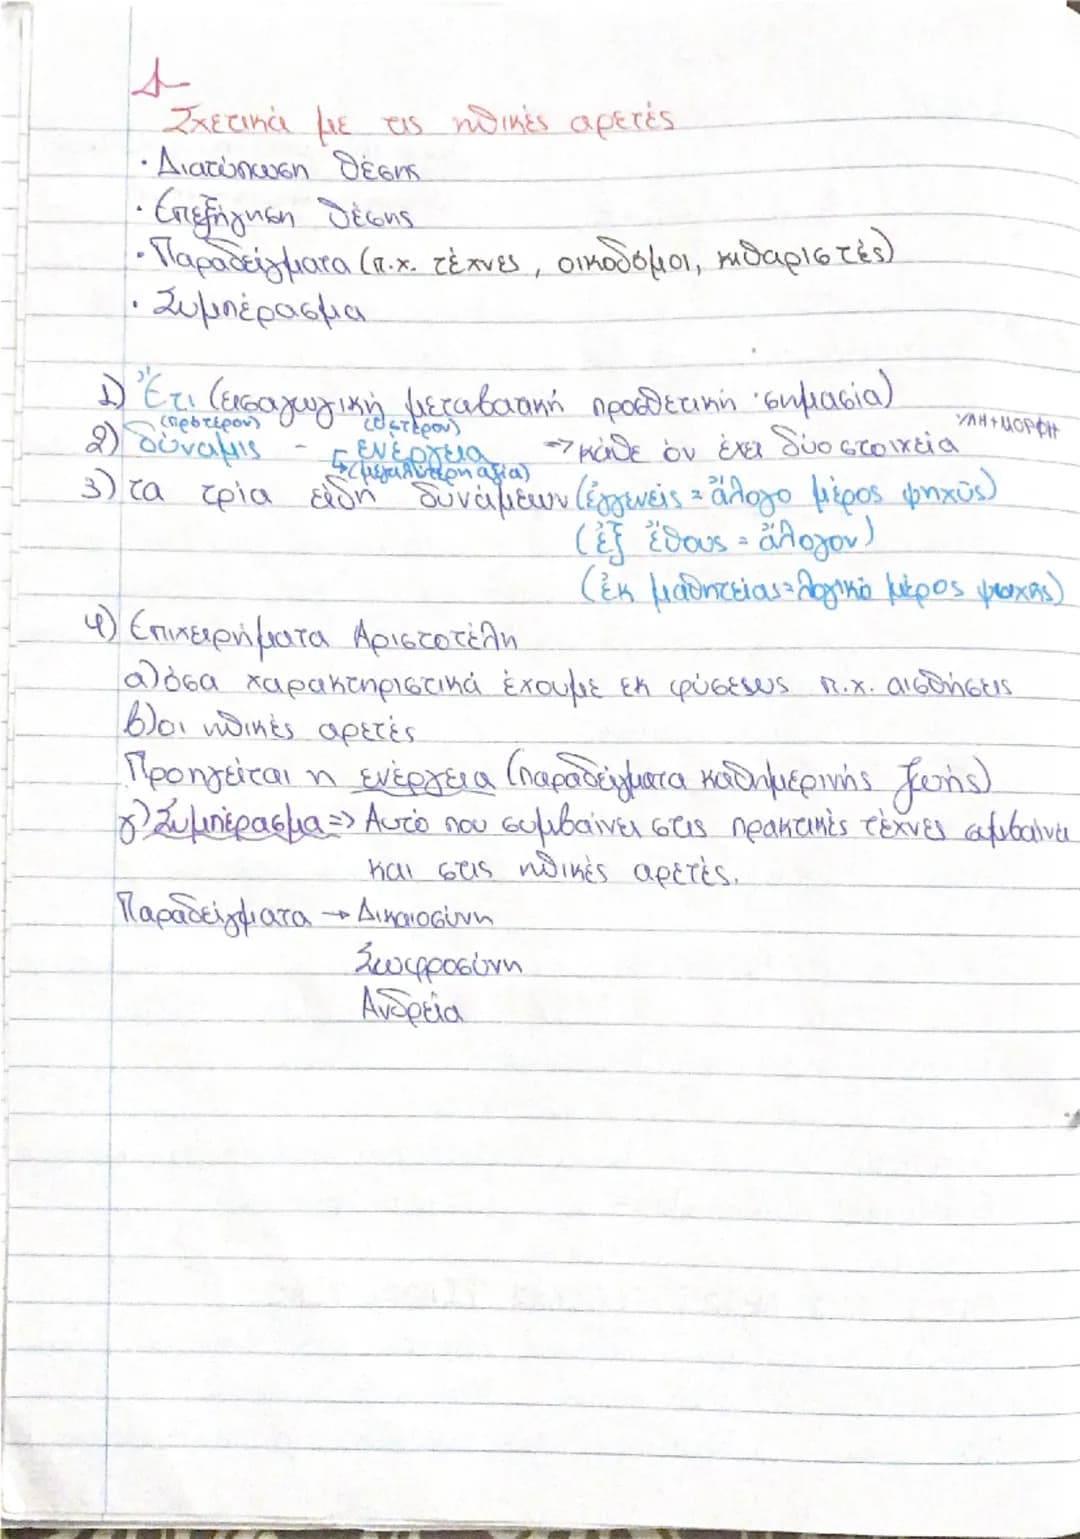 Σχετικά με τις ηθικές αρετές
· Διατύπωση θέσης
· Επεξήγηση θέσης
· Παραδείγματα (π.χ. τέχνες, οικοδόμοι, κιθαριστές)
· Συμπέρασμα
1) Ἔτι (εισαγωγική μεταβατική προσθετική σημασία)
(πρότερον) (ύστερον) ΥΛΗ+ΜΟΡΦΗ
2) δύναμις - ενέργεια => κάθε όν έχει δύο στοιχεία
↳(μεγαλύτερη αξία)
3) τα τρία είδη δυνάμεων (ἐγγενείς = ἄλογο μέρος ψηχύς)
(ἐξ ἔθους = ἄλογον)
(ἐκ μαθητείας = λογικό μέρος ψυχής)
4) Επιχειρήματα Αριστοτέλη
α) όσα χαρακτηριστικά έχουμε εκ φύσεως π.χ. αισθήσεις
β) οι ηθικές αρετές
Προηγείται η ενέργεια (παραδείγματα καθημερινής ζωής)
γ) Συμπέρασμα => Αυτό που συμβαίνει στις πρακτικές τέχνες συμβαίνει
και στις ηθικές αρετές.
Παραδείγματα → Δικαιοσύνη
Σωφροσύνη
Ανδρεία